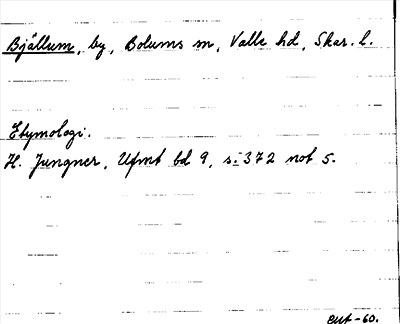 Bjällum, by, Bolums sn, Valle hd, Skar. l.
Etymologi.
H. Jungner, Ufmt bd 9, s. 372 not 5.
-60.